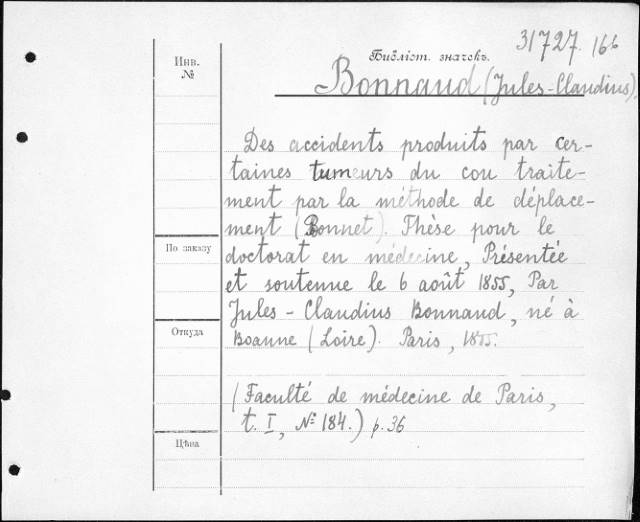 31727. 16b
Инв.
№
Библіот. значекъ.
Bonnaud (Jules-Claudius).
Des accidents produits par cer-
taines tumeurs du cou traite-
ment par la méthode de déplace-
ment (Bonnet). Thèse pour le
По заказу
doctorat en médecine, Présentée
et soutenue le 6 août 1855, Par
Jules-Claudius Bonnaud, né à
Откуда
Boanne (Loire). Paris, 1855.
(Faculté de médecine de Paris,
t. I, № 184.) p. 36
Цѣна